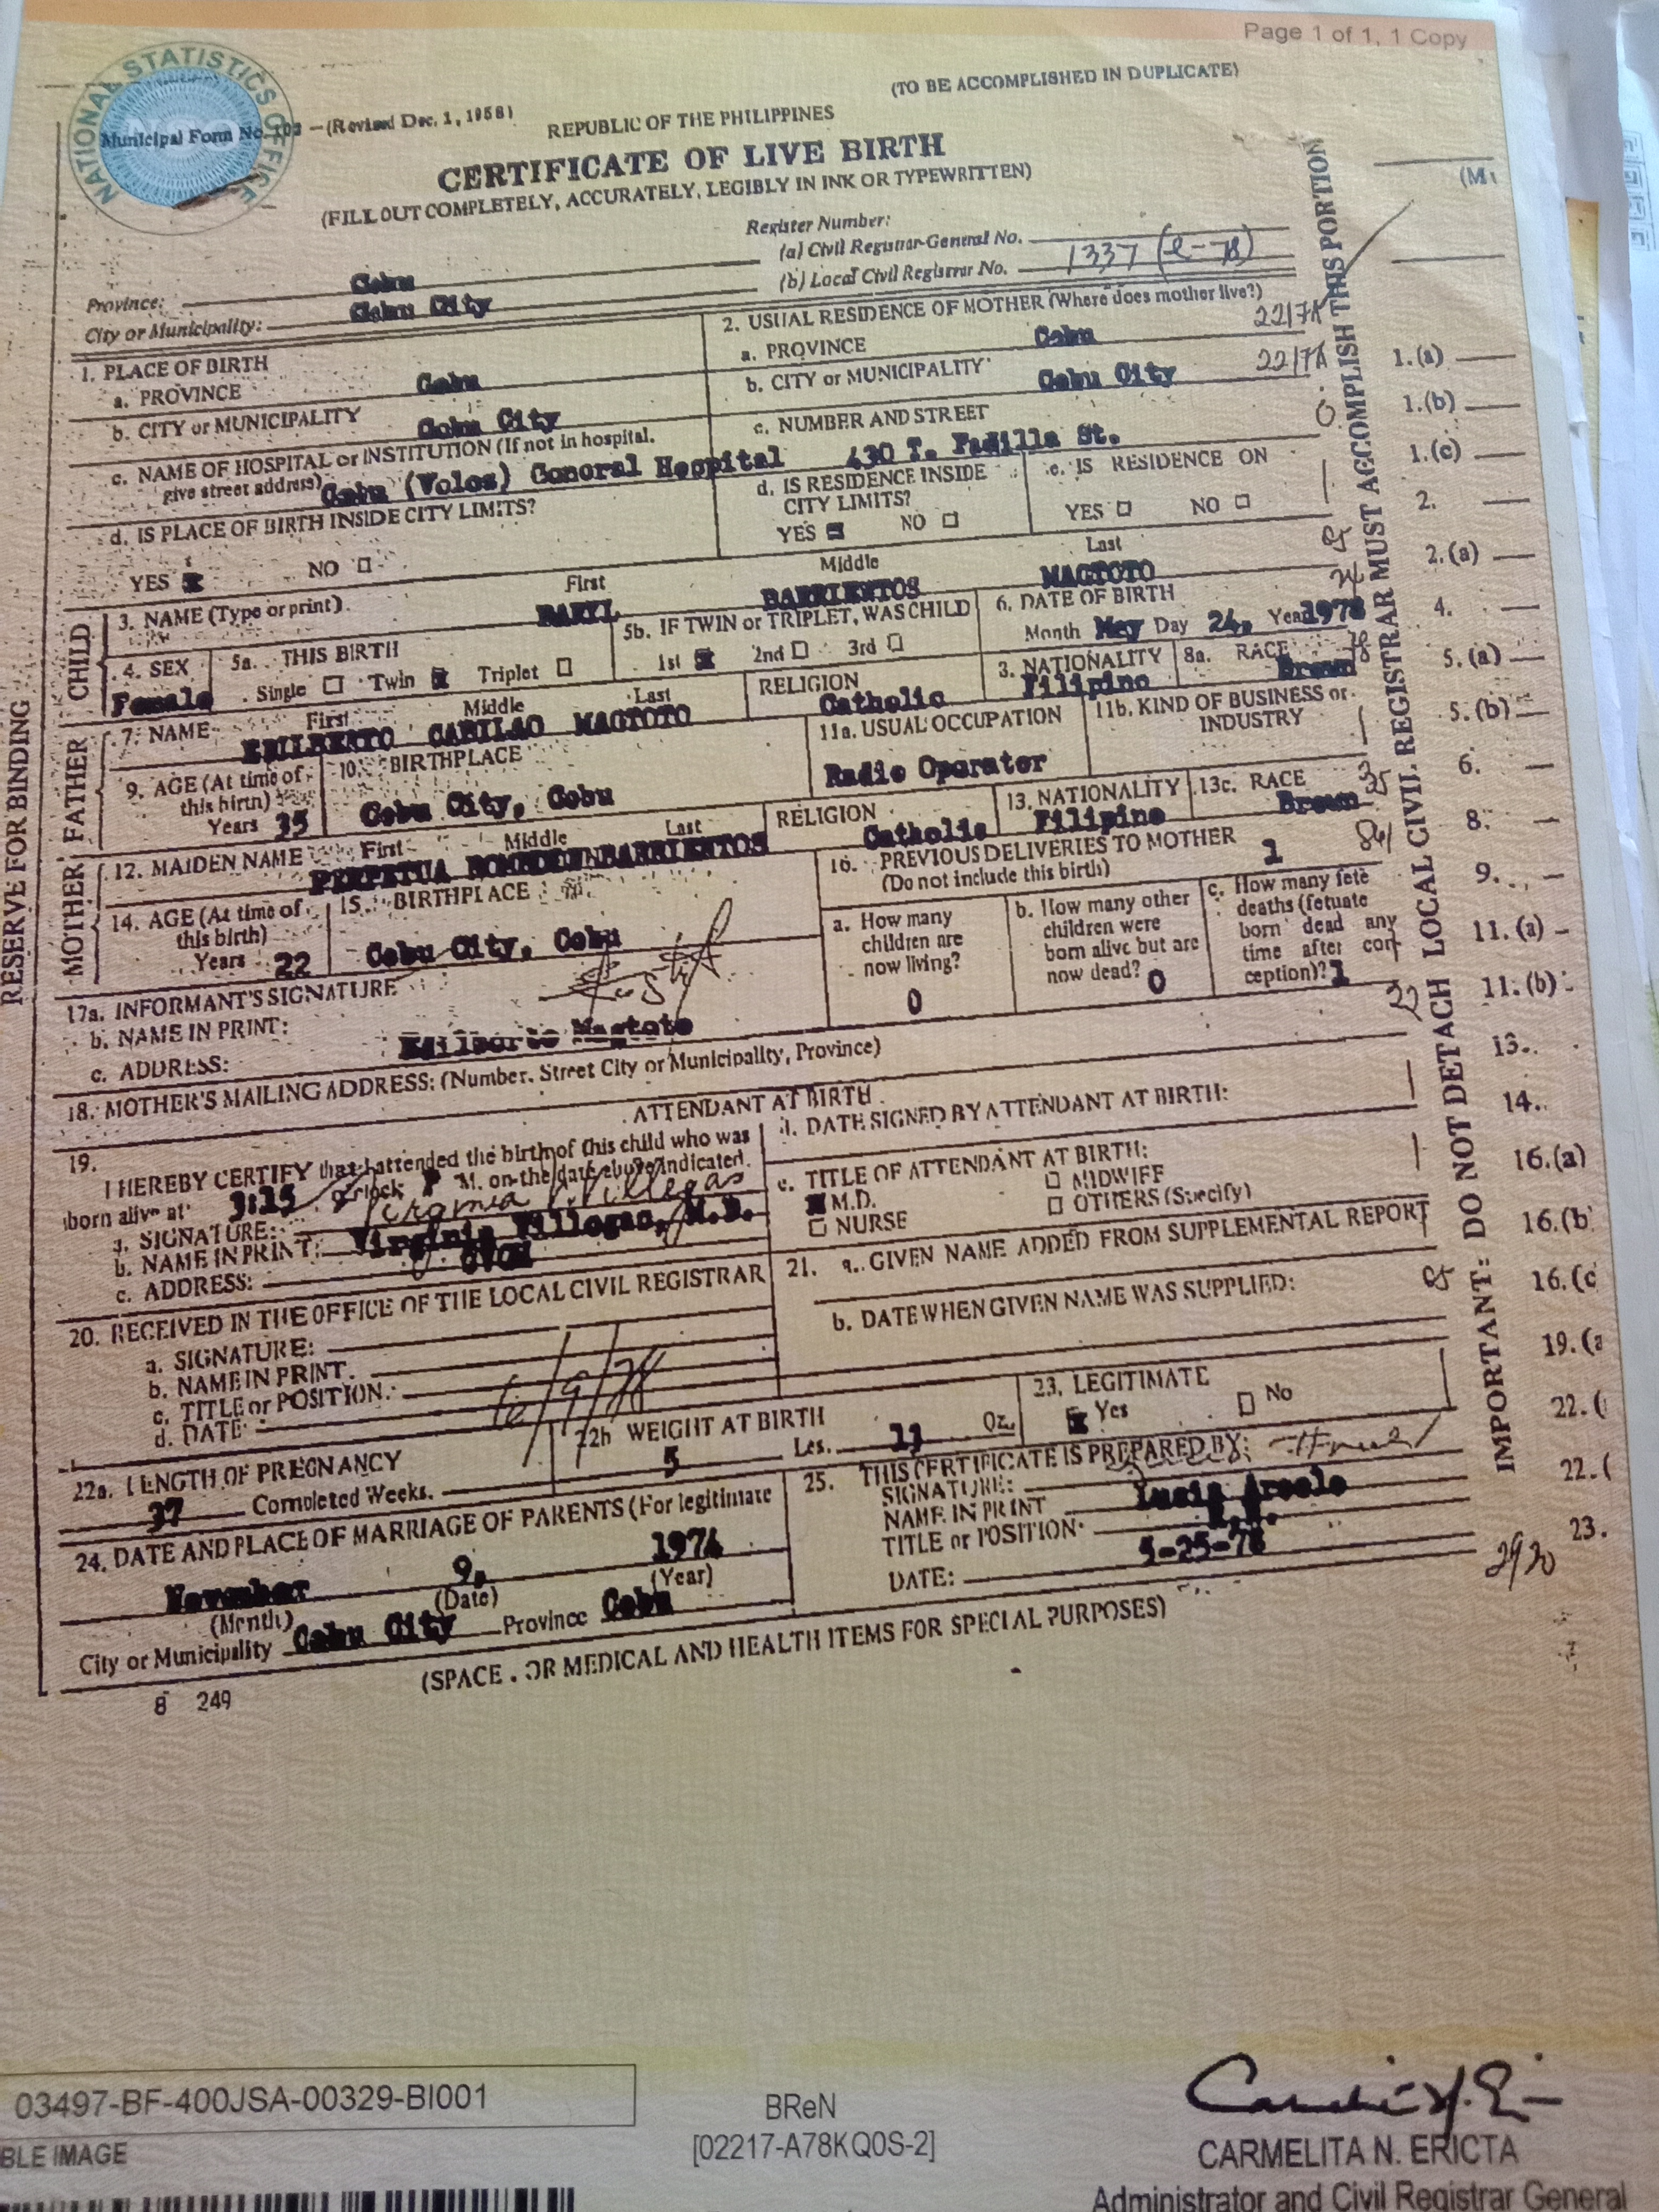 Page 1 of 1, 1 Copy
NATIONAL STATISTICS OFFICE
(TO BE ACCOMPLISHED IN DUPLICATE)
Municipal Form No. 102 - (Revised Dec. 1, 1958)
REPUBLIC OF THE PHILIPPINES
CERTIFICATE OF LIVE BIRTH
(FILL OUT COMPLETELY, ACCURATELY, LEGIBLY IN INK OR TYPEWRITTEN)
Register Number:
(a) Civil Registrar-General No.
(b) Local Civil Registrar No. 1337 (e-78)
Province: Cebu
City or Municipality: Cebu City
1. PLACE OF BIRTH
a. PROVINCE Cebu
b. CITY or MUNICIPALITY Cebu City
c. NAME OF HOSPITAL or INSTITUTION (If not in hospital,
give street address) Cebu (Velez) General Hospital
d. IS PLACE OF BIRTH INSIDE CITY LIMITS?
YES NO
2. USUAL RESIDENCE OF MOTHER (Where does mother live?)
a. PROVINCE Cebu
b. CITY or MUNICIPALITY Cebu City
c. NUMBER AND STREET
430 T. Padilla St.
d. IS RESIDENCE INSIDE
CITY LIMITS?
YES NO
e. IS RESIDENCE ON
YES NO
CHILD
3. NAME (Type or print) First Middle Last
BARRIENTOS MAGTOTO
4. SEX
Female
5a. THIS BIRTH
Single Twin Triplet
5b. IF TWIN or TRIPLET, WAS CHILD
1st 2nd 3rd
6. DATE OF BIRTH
Month May Day 24, Year 1978
FATHER
7. NAME First Middle Last
CABILAO MAGTOTO
RELIGION
Catholic
3. NATIONALITY
Filipino
8a. RACE
Brown
9. AGE (At time of
this birth)
Years 35
10. BIRTHPLACE
Cebu City, Cebu
11a. USUAL OCCUPATION
Radio Operator
11b. KIND OF BUSINESS or
INDUSTRY
MOTHER
12. MAIDEN NAME First Middle Last
PERPETUA BARRIENTOS
RELIGION
Catholic
13. NATIONALITY
Filipino
13c. RACE
Brown
14. AGE (At time of
this birth)
Years 22
15. BIRTHPLACE
Cebu City, Cebu
16. PREVIOUS DELIVERIES TO MOTHER
(Do not include this birth) 1
a. How many
children are
now living?
0
b. How many other
children were
born alive but are
now dead? 0
c. How many fete
deaths (fetuate
born dead any
time after con
ception)? 1
17a. INFORMANT'S SIGNATURE
b. NAME IN PRINT: Edilberto Magtoto
c. ADDRESS:
18. MOTHER'S MAILING ADDRESS: (Number, Street City or Municipality, Province)
ATTENDANT AT BIRTH
19.
I HEREBY CERTIFY that I attended the birth of this child who was
born alive at 3:15 o'clock P M. on the date above indicated.
a. SIGNATURE: Virginia Villegas
b. NAME IN PRINT: Virginia Villegas, M.D.
c. ADDRESS:
d. DATE SIGNED BY ATTENDANT AT BIRTH:
e. TITLE OF ATTENDANT AT BIRTH:
M.D.
MIDWIFF
NURSE
OTHERS (Specify)
20. RECEIVED IN THE OFFICE OF THE LOCAL CIVIL REGISTRAR
a. SIGNATURE:
b. NAME IN PRINT.
c. TITLE or POSITION.
d. DATE 6/9/78
21. a. GIVEN NAME ADDED FROM SUPPLEMENTAL REPORT
b. DATE WHEN GIVEN NAME WAS SUPPLIED:
22a. LENGTH OF PREGNANCY
37 Completed Weeks.
22b WEIGHT AT BIRTH
5 Les. 11 Oz.
23. LEGITIMATE
Yes No
24. DATE AND PLACE OF MARRIAGE OF PARENTS (For legitimate
November 9, 1974
(Month) (Date) (Year)
City or Municipality Cebu City Province Cebu
25. THIS CERTIFICATE IS PREPARED BY:
SIGNATURE:
NAME IN PRINT
TITLE or POSITION
DATE: 5-25-78
(SPACE FOR MEDICAL AND HEALTH ITEMS FOR SPECIAL PURPOSES)
8 249
RESERVE FOR BINDING
IMPORTANT: DO NOT DETACH LOCAL CIVIL REGISTRAR MUST ACCOMPLISH THIS PORTION
1.(a)
1.(b)
1.(c)
2.
2.(a)
4.
5.(a)
5.(b)
6.
8.
9.
11.(a)
11.(b)
13.
14.
16.(a)
16.(b
16.(c
19.(a
22.(
22.(
23.
2920
03497-BF-400JSA-00329-BI001
BLE IMAGE
BReN
[02217-A78KQ0S-2]
CARMELITA N. ERICTA
Administrator and Civil Registrar General